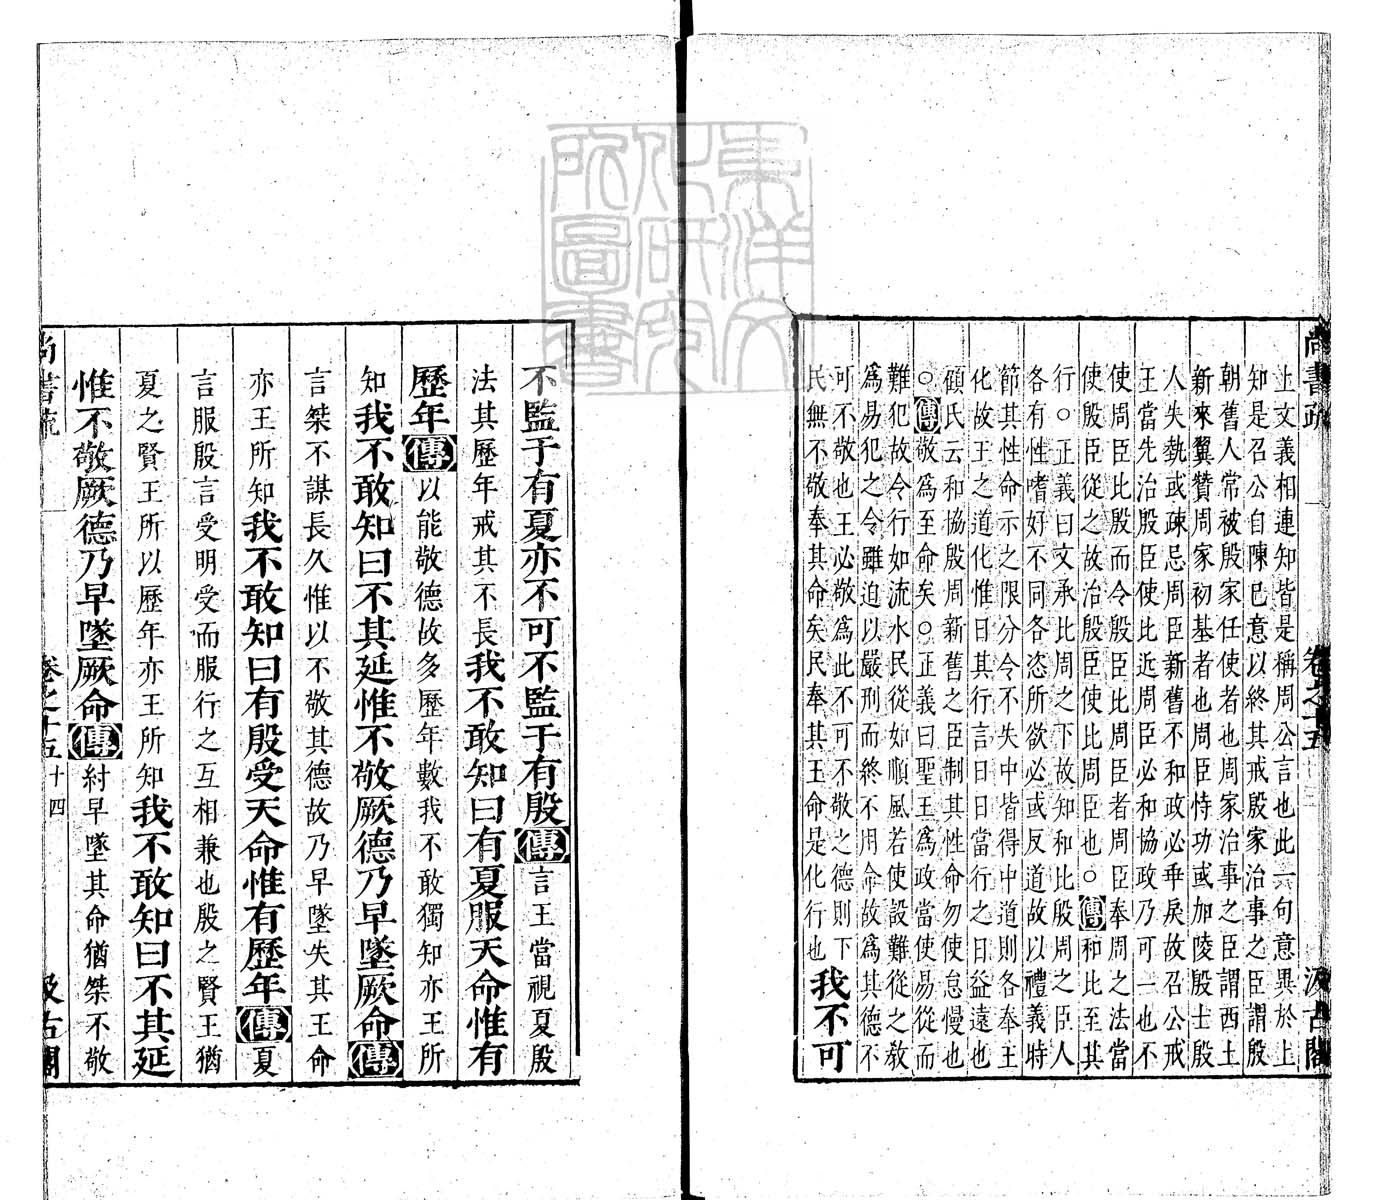 上文義相連知皆是稱周公言也此一句意異於上
知是召公自陳已意以終其戒殷家治事之臣謂殷
朝舊人常被殷家任使者也周家治事之臣謂西土
新來翼贊周家初基者也周臣恃功或加陵殷士殷
人失勢或疎忌周臣新舊不和政必乖戾故召公戒
王當先治殷臣使比近周臣必和協政乃可一也不
使周臣比殷而令殷臣比周臣者周臣奉周之法當
使殷臣從之故治殷臣使比周臣也○傳和比至其
行○正義曰文承比周之下故知和比殷周之臣人
各有性嗜好不同各恣所欲必或反道故以禮義時
節其性命示之限分令不失中皆得中道則各奉王
化故王之道化惟日其行言日日當行之日益遠也
顧氏云和協殷周新舊之臣制其性命勿使怠慢也
○傳敬爲至命矣○正義曰聖王爲政當使易從而
難犯故令行如流水民從如順風若使設難從之敎
爲易犯之令雖迫以嚴刑而終不用命故爲其德不
可不敬也王必敬爲此不可不敬之德則下
民無不敬奉其命矣民奉其王命是化行也
我不可
尚書疏 卷之十五 十三 汲古閣
不監于有夏亦不可不監于有殷傳言王當視夏殷
法其歷年戒其不長我不敢知曰有夏服天命惟有
歷年傳以能敬德故多歷年數我不敢獨知亦王所
知我不敢知曰不其延惟不敬厥德乃早墜厥命傳
言桀不謀長久惟以不敬其德故乃早墜失其王命
亦王所知我不敢知曰有殷受天命惟有歷年傳夏
言服殷言受明受而服行之互相兼也殷之賢王猶
夏之賢王所以歷年亦王所知我不敢知曰不其延
惟不敬厥德乃早墜厥命傳紂早墜其命猶桀不敬
尚書疏 卷之十五 十四 汲古閣
東洋文化研究所圖書